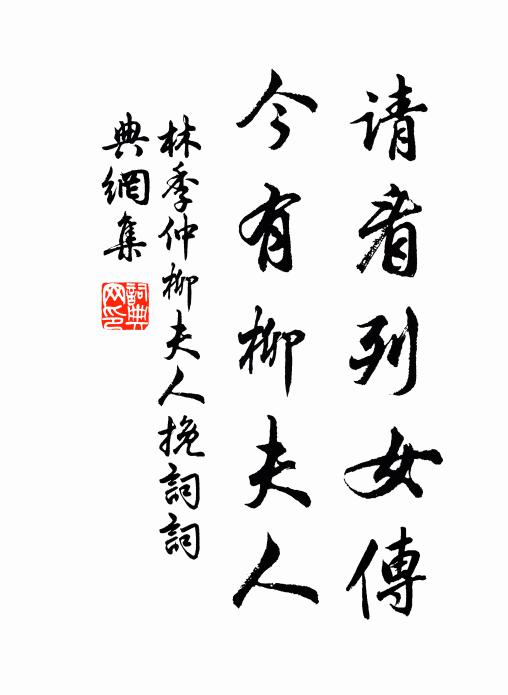 请看列女傳
今有柳夫人
林季仲柳夫人挽詞詞
典網集
詞典網印